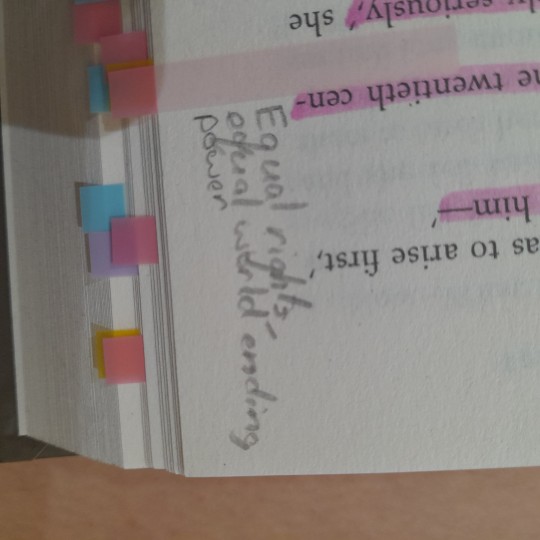 as to arise first,'
him—'
twentieth cen-
seriously,' she
Equal rights-
equal world ending
power